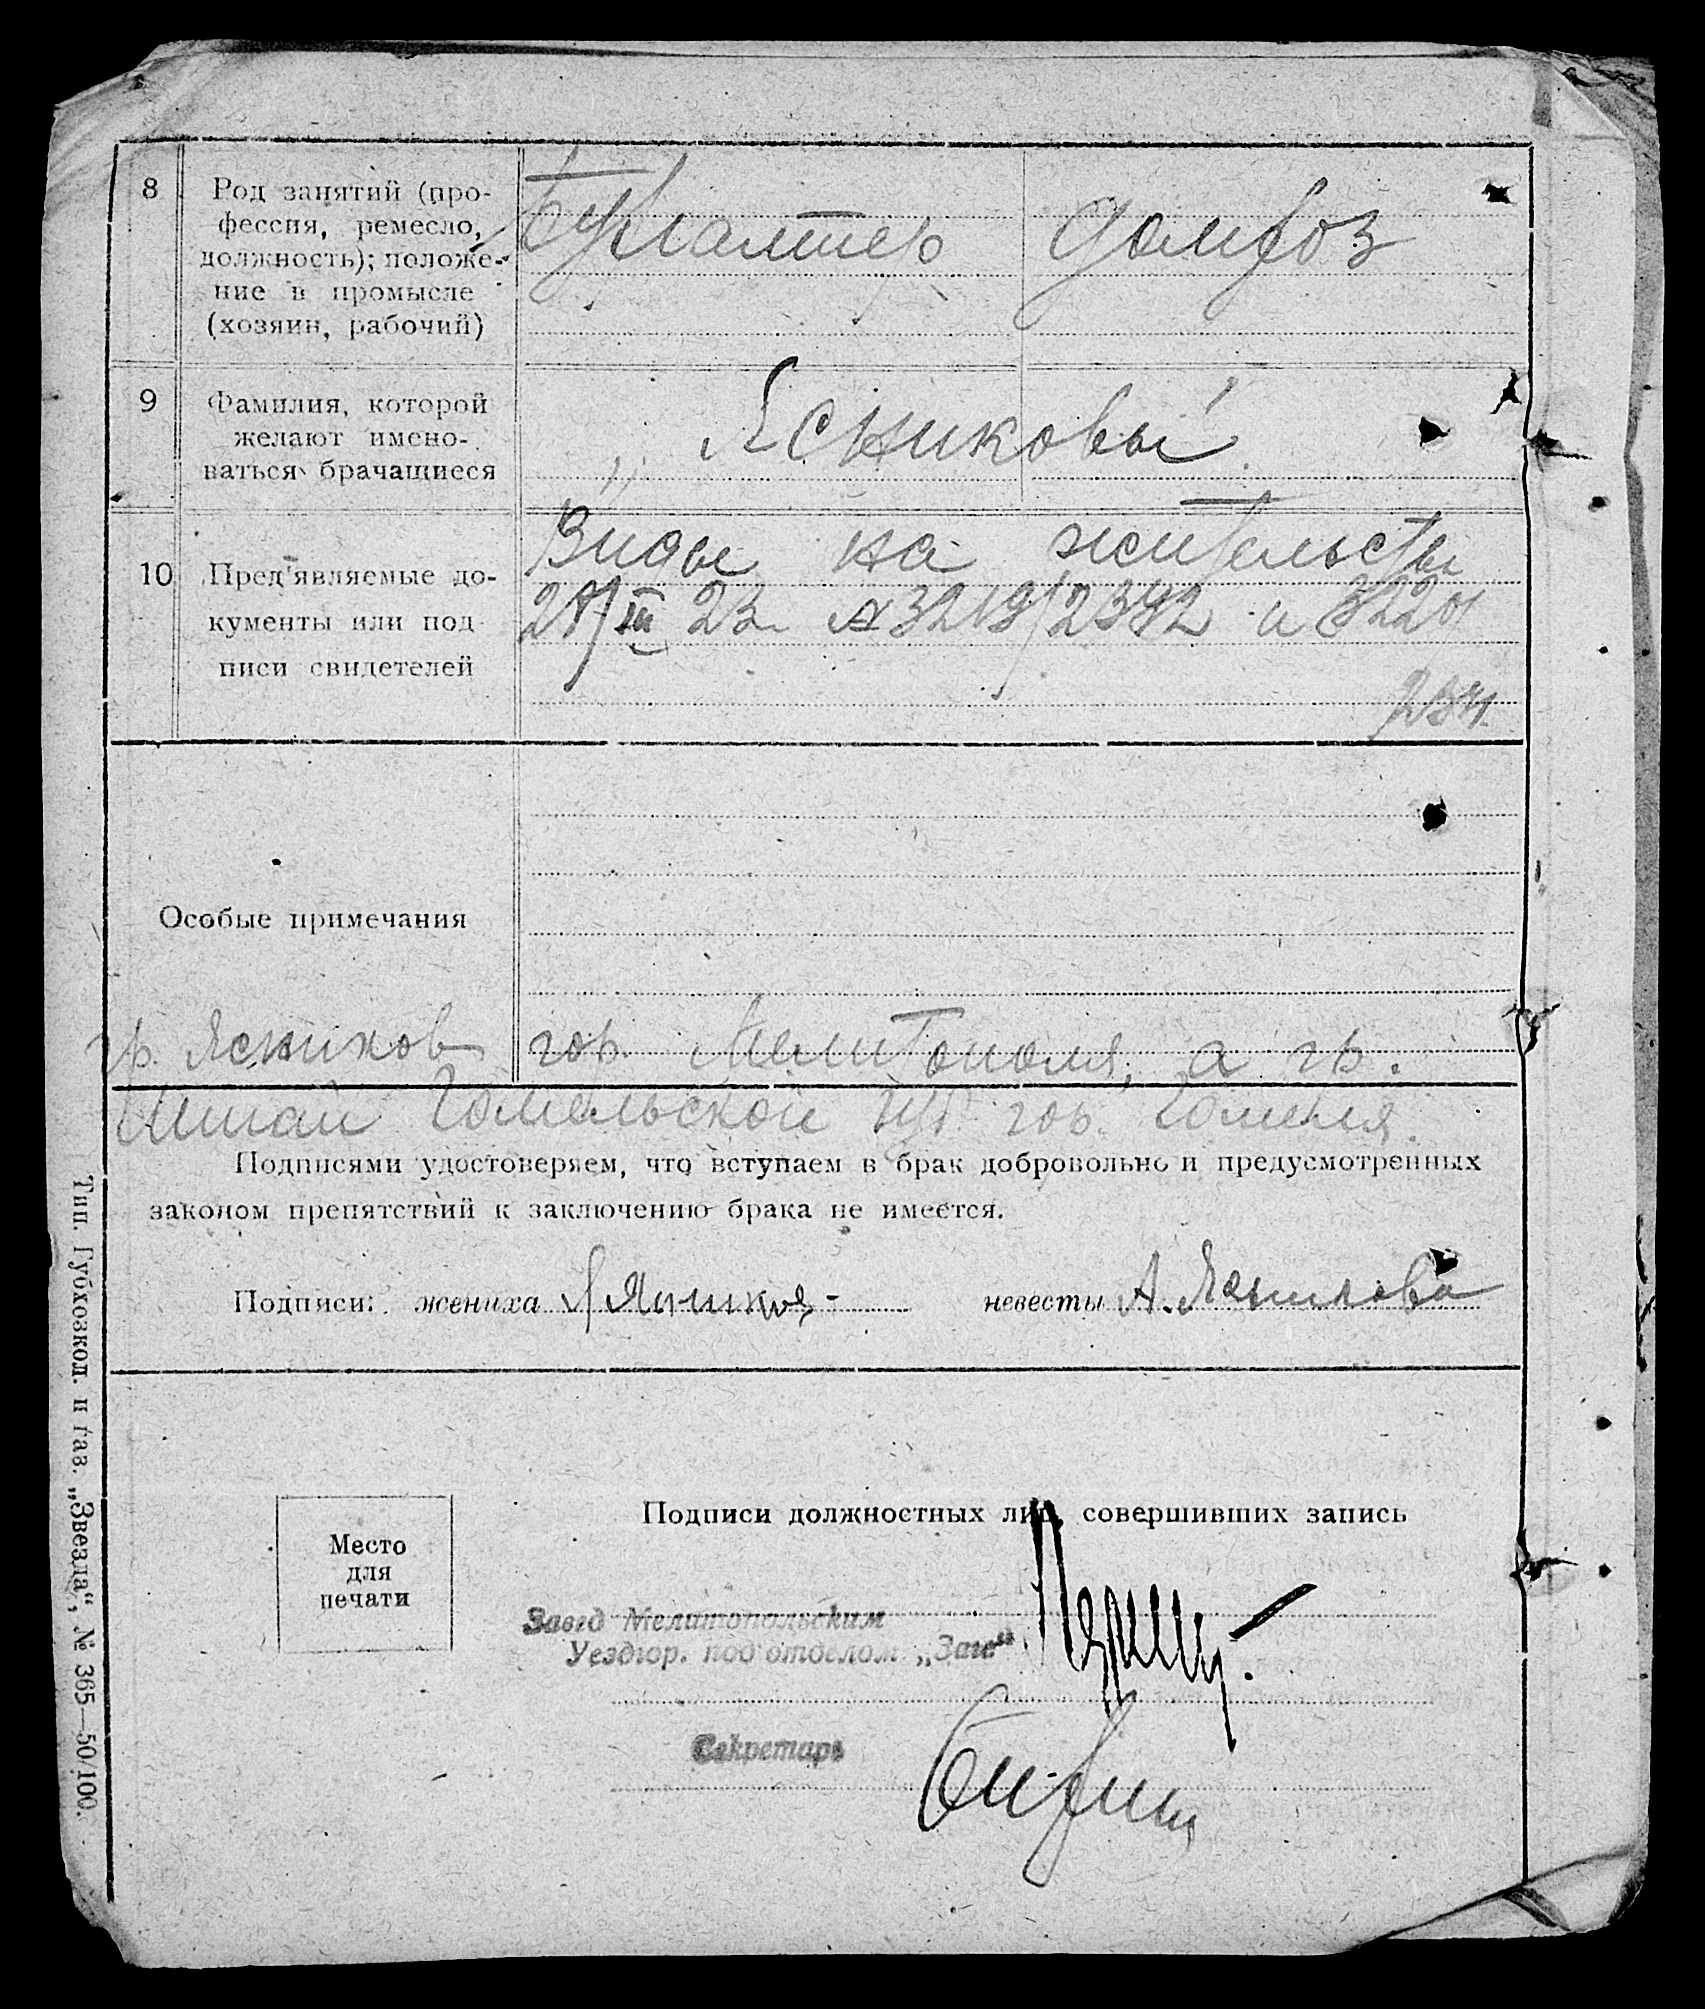 8
Род занятий (про-
фессия, ремесло,
должность); положе-
ние в промысле
(хозяин, рабочий)
Бухгалтер
домхоз
9
Фамилия, которой
желают имено-
ваться брачащиеся
„ Ясниковы
10
Пред'являемые до-
кументы или под
писи свидетелей
Виды на жительство
III 23 3219/2342 и 3220
Особые примечания
гр. Ясников гор. Мелитополя, а гр.
Гомельской губ гор. Гомеля.
Подписями удостоверяем, что вступаем в брак добровольно и предусмотренных
законом препятствий к заключению брака не имеется.
Подписи: жениха Ясников невесты А. Ясникова
Подписи должностных лиц, совершивших запись
Место
для
печати
Завед Мелитопольским
Уездгор. под'отделом „Загс"
Секретарь
Тип. Губхозкол. и газ. „Звезда", № 365—50/100.